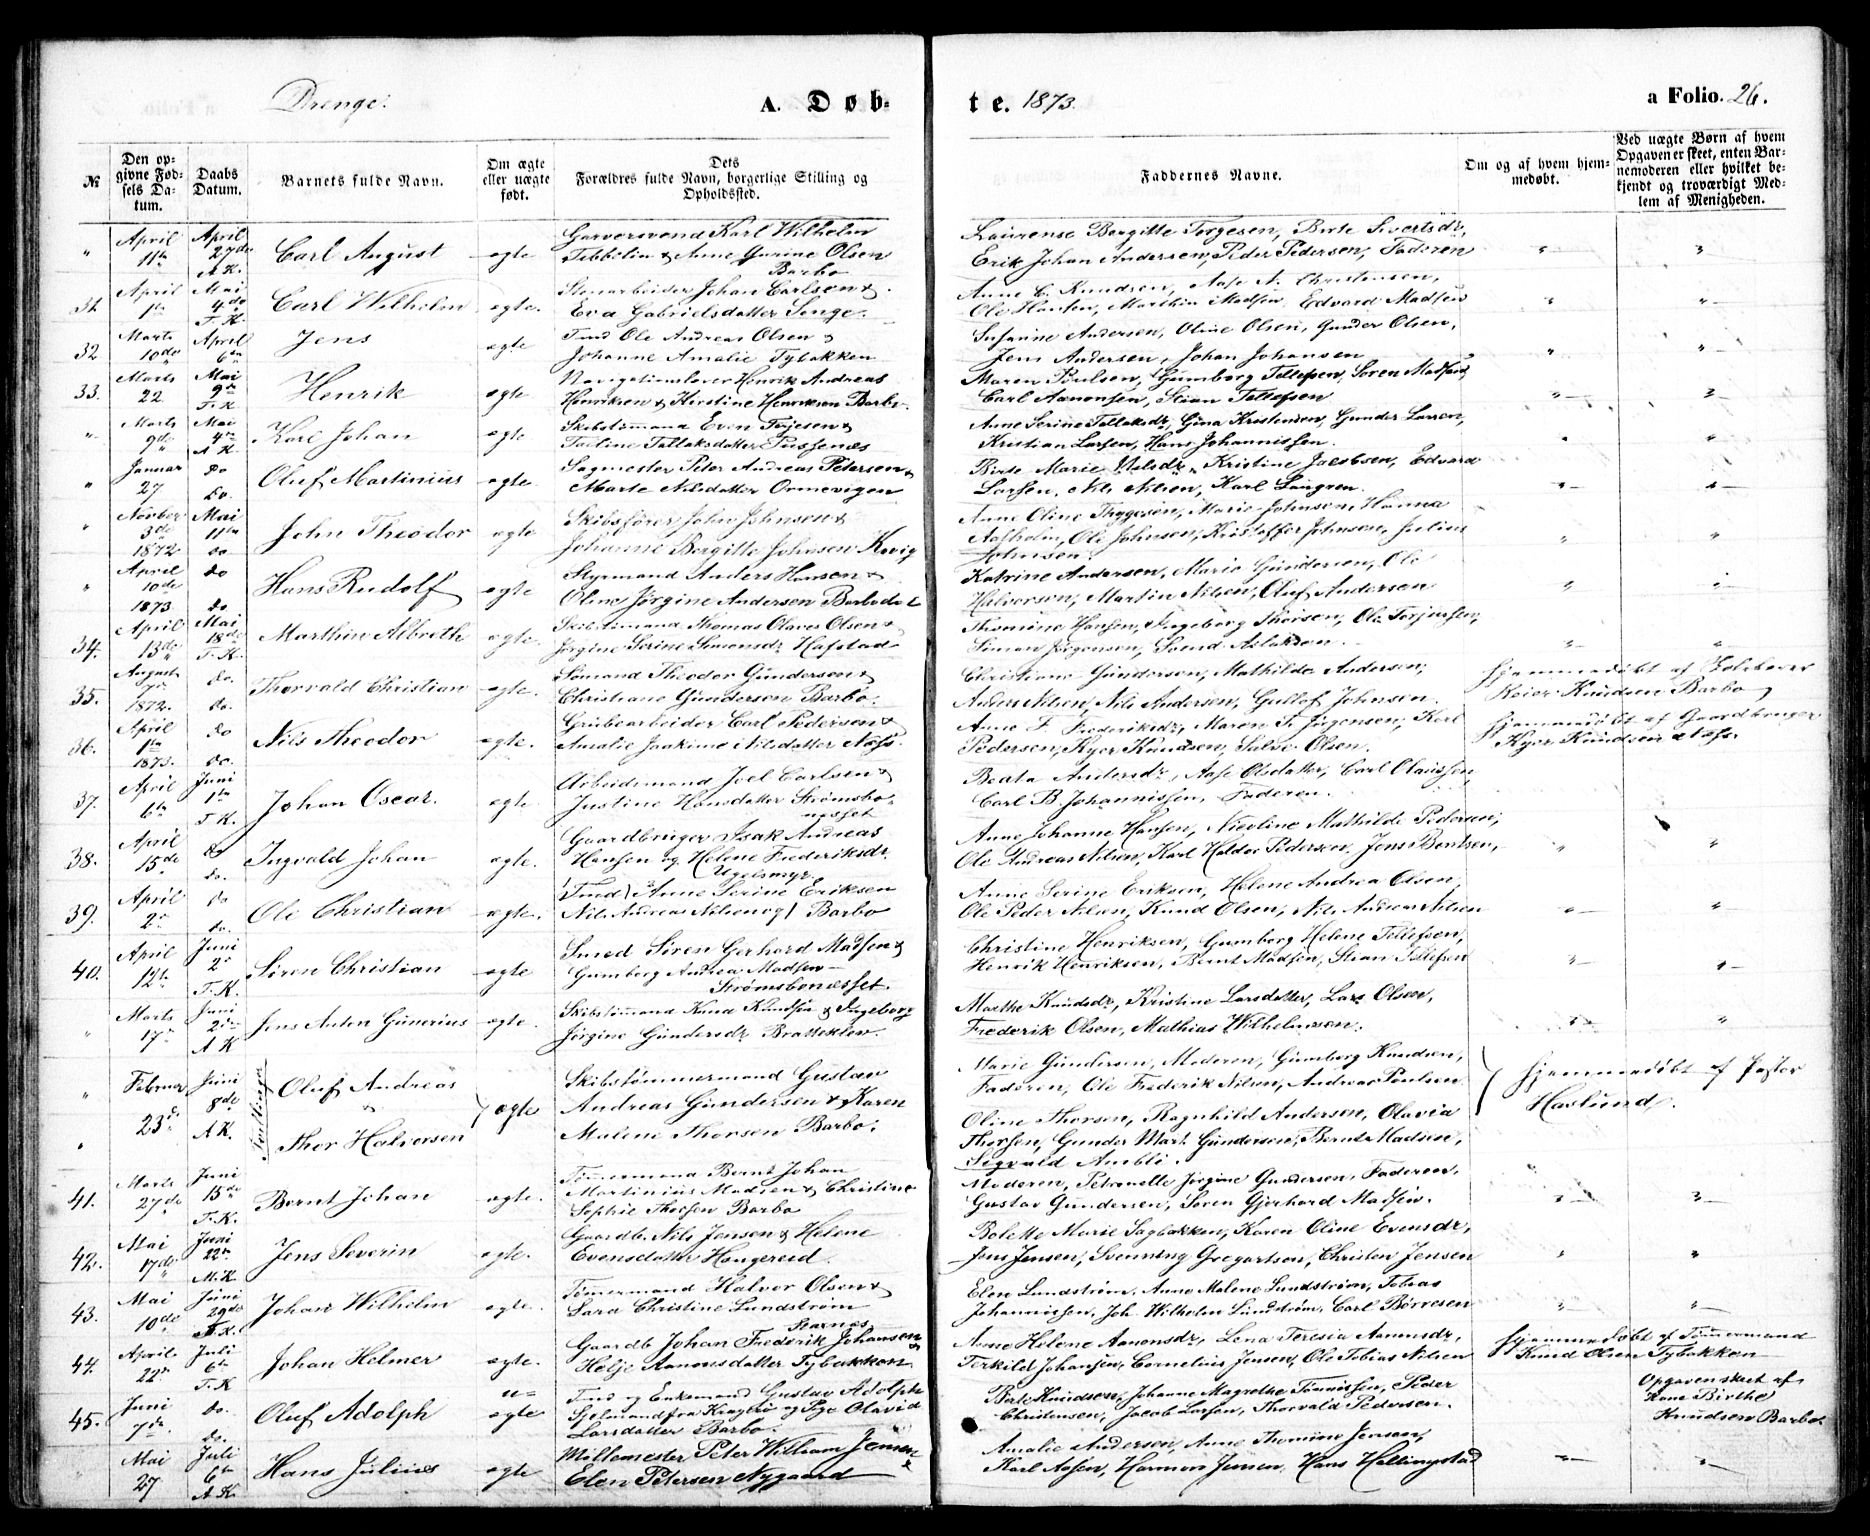 Drenge.
A. Døb-
te. 1873.
a Folio. 26.
№
Den opgivne Fødsels Datum.
Daabs Datum.
Barnets fulde Navn.
Om ægte eller uægte født.
Dets Forældres fulde Navn, borgerlige Stilling og Opholdssted.
Faddernes Navne.
Om og af hvem hjemmedøbt.
Ved uægte Børn af hvem Opgaven er skeet, enten Barnemoderen eller hvilket bekjendt og troværdigt Medlem af Menigheden.
" April 11te April 27de A.K. Carl August ægte Garversvend Karl Wilhelm
& Anne Gurine Olsen
Barbo
Laurense Bergitte Torgesen, Birte Sivertsdr,
Erik Johan Andersen, Peder Pedersen, Faderen
31. April 1te Mai 4de T.K. Carl Wilhelm ægte. Stenarbeider Johan Carlsen &
Eva Gabrielsdatter Songe.
Anne C. Knudsen, Aase N. Christensen,
Ole Hansen, Madsen, Edvard Madsen
32 Marts 10de April 6te Jens ægte Tmd Ole Andreas Olsen &
Johanne Amalie Tybakken
Susanne Andersen, Oline Olsen, Gunder Olsen,
Jens Andersen, Johan Johansen
33. Marts 22 Mai 9de T.K. Henrik ægte Navigationslærer Henrik Andreas
Henriksen & Kirstine Henriksen Barbo.
Maren Poulsen, Gumborg Tellefsen, Søren Madsen,
Carl Aanonsen, Stian Tellefsen
" Marts 9de Mai 4de A.K. Karl Johan ægte Skibstømmand Even Terjesen &
Talline Tallaksdatter Pussenes
Anne Serine Tallaksdr, Gina Kristensen, Gunder Larsen,
Kristian Larsen, Hans Johannissen.
" Januar 27 Do Do. Oluf Martinius ægte. Sagmester Peter Andreas Petersen &
Marte Nilsdatter Ormevigen
Birte Marie Nilsdr, Kristine Jacobsen, Edvard
Larsen, Nils Nilsen, Karl Laugren.
" Novber 3de 1872 Mai 11te do John Theodor ægte Skibsfører John Johnsen &
Johanne Bergitte Johnsen Kovig
Anne Oline Thygesen, Marie Johnsen, Hanna
Aalholm, Ole Johnsen, Kristoffer Johnsen, Julius
Johnsen.
" April 10de 1873 do Do Hans Rudolf ægte Styrmand Anders Hansen &
Oline Jørgine Andersen Barbodal
Katrine Andersen, Marie Gundersen, Ole
Halvorsen, Martin Nilsen, Oluf Andersen
34. April 13de Mai 18de T.K. Marthin Albreth ægte. Skibstømmand Thomas Olaves Olsen &
Jørgine Serine Simonsdr Hafstad
Thomine Hansen, Ingeborg Thorsen, Ole Torjussen,
Simon Jørgensen, Svend Aslaksen.
35. August 7de 1872. do. do. Thorvald Christian ægte. Sømand Theodor Gundersen &
Christiane Gundersen Barbo.
Christiane Gundersen, Mathilde Andersen,
Anders Nilsen, Nils Andersen, Gullef Johnsen.
Hjemmedøbt af
Reier Knudsen Barbo
36. April 1te 1873. do Do. Nils Theodor ægte. Grubearbeider Carl Pedersen &
Amalie Joakime Nilsdatter Næss.
Anne F. Frederiksdr, Maren F. Jørgensen, Karl
Pedersen, Kjer Knudsen, Salve Olsen.
Hjemmedøbt af Gaardbruger
Kjer Knudsen Næss.
37. April 6te Juni 1te T.K. Johan Oscar. ægte Arbeidsmand Joel Carlsen &
Justine Hansdatter Strømsbo-
næsset
Beata Andersdr, Aase Olsdatter, Carl Olaussen,
Carl B. Johannissen, Faderen.
38. April 15de do Do. Ingvald Johan ægte. Gaardbruger Isak Andreas
Hansen og Helene Frederiksdr.
Ugelsmyr
Anne Johanne Hansen, Nicoline Mathilde Pedersen,
Ole Andreas Nilsen, Karl Haldor Pedersen, Jens Bentsen,
39. April 2de do Do. Ole Christian ægte. Tmd Anne Serine Eriksen
Nils Andreas Nilsen og Barbo
Anne Serine Eriksen, Helene Andrea Olsen,
Ole Peder Nilsen, Knud Olsen, Nils Andreas Nilsen
40. April 12te Juni 2de T.K. Søren Christian ægte Smed Søren Gerhard Madsen &
Gumborg Andrea Madsen
Strømsbonæsset.
Christine Henriksen, Gumborg Helene Tellefsen,
Henrik Henriksen, Bernt Madsen, Stian Tellefsen
" Marts 17de Juni 2den A.K. Jens Anton Gunerius ægte. Skibstømmand Knud Knudsen & Ingeborg
Jørgine Gundersdr Bratteklev.
Marthe Knudsdr, Kristine Larsdatter, Lars Olsen,
Frederik Olsen, Mathias Wilhelmsen.
" Februar 23de Juni 8de A.K. Tvillinger Oluf Andreas
" Thor Halvorsen
ægte Skibstømmermand Gustav
Andreas Gundersen & Karen
Malene Thorsen Barbo.
Marie Gundersen, Moderen, Gumborg Knudsen,
Faderen, Ole Frederik Nilsen, Andreas Poulsen.
Oline Thorsen, Ragnhild Andersen, Olavia
Thorsen, Gunder Mart. Gundersen, Bernt Madsen,
Sigvald Amble.
Hjemmedøbt af Pastor
Haslund.
41. Marts 27de Juni 15de T.K. Bernt Johan ægte. Tømmermand Bernt Johan
Martinius Madsen & Christine
Sophie Thorsen Barbo
Moderen, Petronelle Jørgine Gundersen, Faderen,
Gustav Gundersen, Søren Gjerhard Madsen.
42. Mai 17de Juni 22de M.K. Jens Severin ægte. Gaardb. Nils Jensen & Helene
Evensdatter Haugereid.
Bolette Marie Sagbakken, Karen Oline Evensdr,
Jens Jensen, Svenning Gregersen, Christen Jensen
43. Mai 10de Juni 29de T.K. Johan Wilhelm ægte. Tømmermand Halvor Olsen &
Sara Christine Lundstrøm
Elen Lundstrøm, Anne Malene Lundstrøm, Tobias
Johannissen, Joh. Wilhelm Lundstrøm, Carl Børresen
44. April 22de Juli 6te T.K Johan Helmer ægte. Gaardb Johan Frederik Johansen &
Helje Aanonsdatter Tybakken
Anne Helene Aanonsdr, Lena Teresia Aanonsdr,
Terkild Johansen, Cornelius Jensen, Ole Tobias Nilsen
Hjemmedøbt af Tømmermand
Knud Olsen Tybakken
45. Juni 7de Do. Do. Oluf Adolph u=ægte Tmd og Enkemand Gustav Adolph
fra Kragerø og Pige Olavia
Larsdatter Barbo.
Birte Knudsen, Johanne Magrethe Tønnissen, Peder
Christensen, Jacob Larsen, Thorvald Pedersen.
Opgaven skeet af
Kone Birthe
Knudsen Barbo
Mai 27 Juli 6te A.K Hans Julius ægte Møllemester Peter William Jensen &
Elen Petersen Nygaard
Amalie Andersen, Anne Thomine Jensen,
Karl Aasen, Herman Jensen, Hans Hellingstad